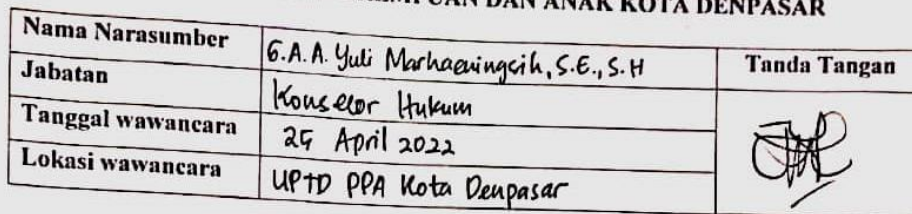 DAN ANAK KOTA DENPASAR
Nama Narasumber
G.A.A. Yuli Marhaeningsih, S.E., S.H
Tanda Tangan
Jabatan
Konselor Hukum
Tanggal wawancara
April 2022
Lokasi wawancara
UPTD PPA Kota Denpasar